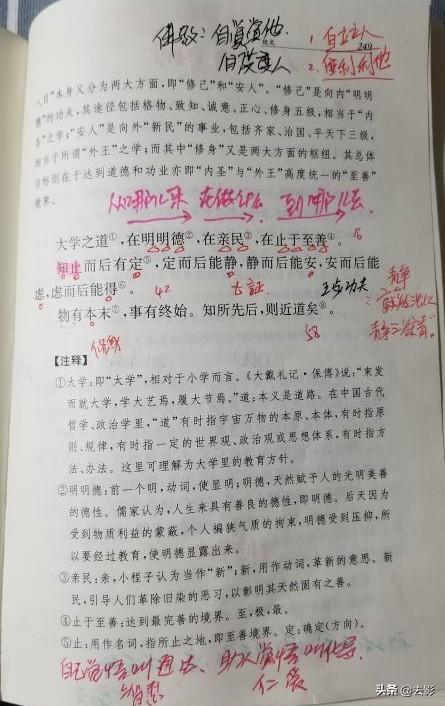 佛教：自觉觉他
自度度人
1. 自立立人
2. 自利利他
249
八目”本身又分为两大方面，即“修己”和“安人”。“修己”是向内“明明
德”的功夫，其途径包括格物、致知、诚意、正心、修身五级，相当于“内
圣”之学；“安人”是向外“新民”的事业，包括齐家、治国、平天下三级，
相当于所谓“外王”之学；而其中“修身”又是两大方面的枢纽。其总体
目标则在于达到道德和功业亦即“内圣”与“外王”高度统一的“至善”
境界。
从哪儿来 在做什么 到哪儿去
大学之道①，在明明德②，在亲民③，在止于至善④。16
知止而后有定⑤，定而后能静，静而后能安，安而后能
虑，虑而后能得⑥。 42
物有本末⑦，事有终始。知所先后，则近道矣⑧。
58
【注释】
①大学：即“大学”，相对于小学而言。《大戴礼记·保傅》说：“束发
而就大学，学大艺焉，履大节焉。”道：本义是道路。在中国古代
哲学、政治学里，“道”有时指宇宙万物的本原、本体，有时指原
则、规律，有时指一定的世界观、政治观或思想体系，有时指方
法、办法。这里可理解为大学里的教育方针。
②明明德：前一个明，动词，使显明；明德，天然赋予人的光明美善
的德性。儒家认为，人生来具有善良的德性，即明德。后天因为
受到物质利益的蒙蔽，个人褊狭气质的拘束，明德受到压抑，所
以要经过教育，使明德显露出来。
③亲民：亲，小程子认为当作“新”；新，用作动词，革新的意思。新
民，引导人们革除旧染的恶习，以彰明其天然固有之善。
④止于至善：达到最完善的境界。至，极，最。
⑤止：用作名词，指所止之地，即至善境界。定：确定（方向）。
自己觉悟叫通达、助人觉悟叫化导。
智慧 仁爱
头条 @去影